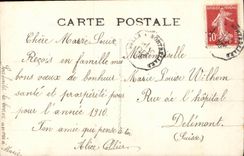 CARTE POSTALE
Chère Marie Louise
Reçois en famille mes
bons vœux de bonheur
santé et prospérité pour
pour l'année 1910.
Ton amie qui pense à toi
Alice Allier
Mademoiselle
Marie Louise Wilhem
Rue de l'hôpital
Delémont
(Suisse)
10